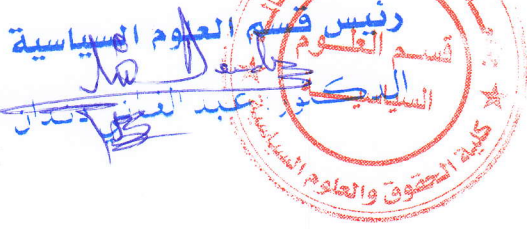 رئيس قسم العلوم السياسية
الدكتور عبد
قسم العلوم
السياسية
كلية الحقوق والعلوم السياسية